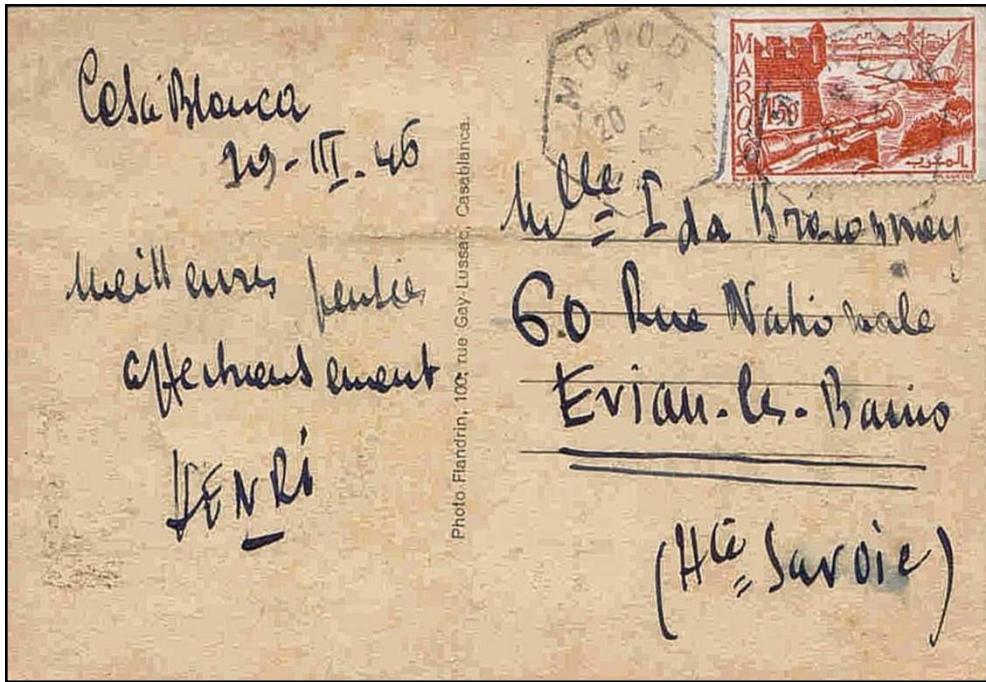 Casablanca
29-III.46
Meilleures pensées
affectueusement
HENRI
Photo Flandrin, 100, rue Gay-Lussac, Casablanca.
MONOD
20
MAROC
1F50
المغرب
Mlle Ida
60 Rue Nationale
Evian-les-Bains
(Hte Savoie)